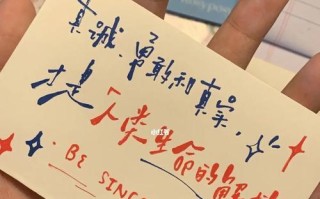 真诚、勇敢和真实,
才是
人类生命的解
小红书
· BE SINC